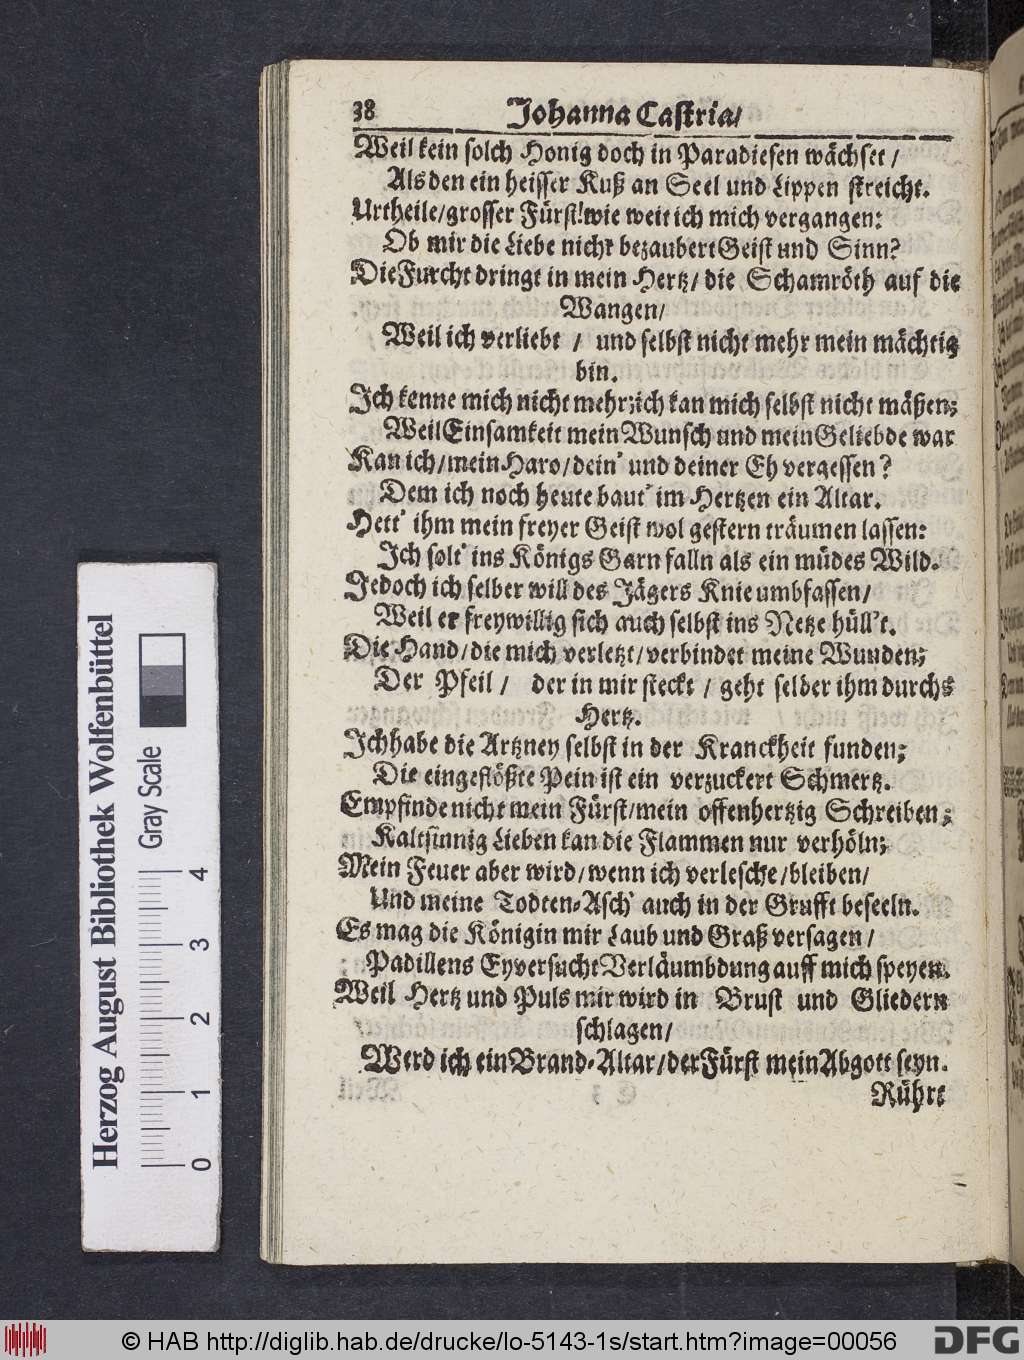 38 Johanna Castria/
Weil kein solch Honig doch in Paradiesen wächset /
Als den ein heisser Kuß an Seel und Lippen streicht.
Urtheile/grosser Fürst!wie weit ich mich vergangen:
Ob mir die Liebe nicht bezaubert Geist und Sinn?
Die Furcht dringt in mein Hertz/ die Schamröth auf die
Wangen/
Weil ich verliebt / und selbst nicht mehr mein mächtig
bin.
Ich kenne mich nicht mehr;ich kan mich selbst nicht mäßen;
Weil Einsamkeit mein Wunsch und mein Geliebde war
Kan ich/mein Haro/dein' und deiner Eh vergessen?
Dem ich noch heute baut' im Hertzen ein Altar.
Hett' ihm mein freyer Geist wol gestern träumen lassen:
Ich solt' ins Königs Garn falln als ein müdes Wild.
Jedoch ich selber will des Jägers Knie umbfassen/
Weil er freywillig sich auch selbst ins Netze hüll't.
Die Hand/die mich verletzt/verbindet meine Wunden;
Der Pfeil / der in mir steckt / geht selber ihm durchs
Hertz.
Ich habe die Artzney selbst in der Kranckheit funden;
Die eingeflößte Pein ist ein verzuckert Schmertz.
Empfinde nicht mein Fürst/mein offenhertzig Schreiben;
Kaltsinnig Lieben kan die Flammen nur verhöln;
Mein Feuer aber wird/wenn ich verlesche/bleiben/
Und meine Todten-Asch' auch in der Grufft beseeln.
Es mag die Königin mir Laub und Graß versagen/
Padillens Eyversucht Verläumbdung auff mich speyen.
Weil Hertz und Puls mir wird in Brust und Gliedern
schlagen/
Werd ich ein Brand-Altar/der Fürst mein Abgott seyn.
Rührt
Herzog August Bibliothek Wolfenbüttel
Gray Scale
0 1 2 3 4
© HAB http://diglib.hab.de/drucke/lo-5143-1s/start.htm?image=00056
DFG